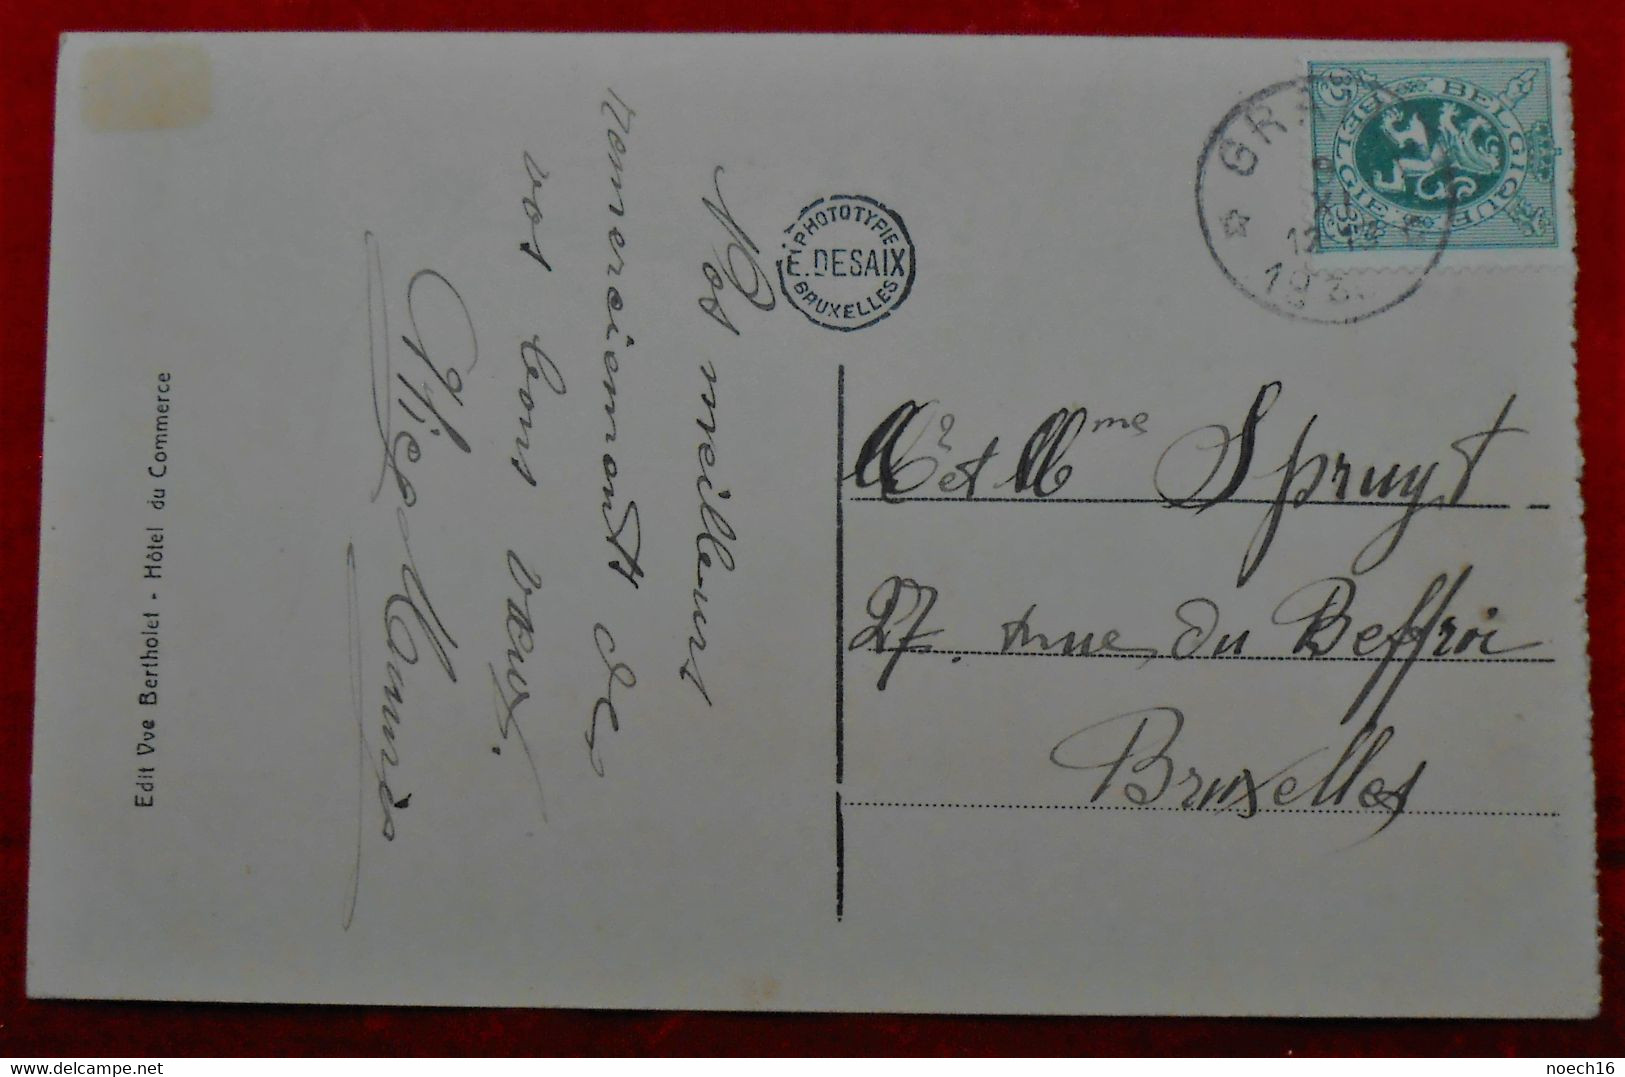 Nos meilleurs
remerciements de
vos bons vœux.
Edit Vve Bertholet - Hôtel du Commerce
PHOTOTYPIE
E. DESAIX
BRUXELLES
BELGIQUE
BELGIE
35
35
GR
193
Mr et Mme Spruyt
27, rue du Beffroi
Bruxelles
delcampe.net
noech16